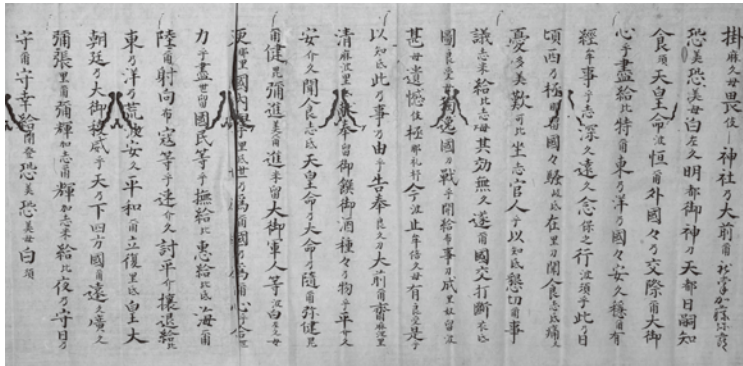 掛麻久母畏伎―神社乃大前爾
恐美恐美母白左久明都御神乃天都日嗣知
食須天皇命波恒爾外國々乃交際爾大御
心乎盡給比特爾東乃洋乃國々安久穩爾有
經牟事乎志深久遠久念保之行波須乎此乃日
頃西乃極那留國々騒比氐在里刀聞食志氐痛久
憂多美歎可比坐志官人乎以知氐懇切爾事
議志米給比志母其効無久遂爾國交打斷氐
圖良受母獨逸國刀戰乎開給布事刀成里奴留波
甚母遺憾伎極那礼杼今波止牟倍久母有良受是乎
以知氐此乃事乃由乎告奉良久刀大前爾齋麻波里
清麻波里氐献奉留御饌御酒種々乃物乎平介久
安介久聞食志氐天皇命乃大命乃隨爾弥健毘
爾健毘彌進美爾進米留大御軍人等波白左久母
更那里國内擧里氐世乃為爾國乃為爾心乎合世
力乎盡世留國民等乎撫給比惠給比氐海爾
陸爾射向布寇等乎速介久討平介攘退給比
東乃洋乃荒波安久平和爾立復里氐皇大
朝廷乃大御稜威乎天乃下四方國爾遠久廣久
彌張里爾彌輝加志爾輝加志米給比夜乃守日乃
守爾守幸給閇登恐美恐美母白須